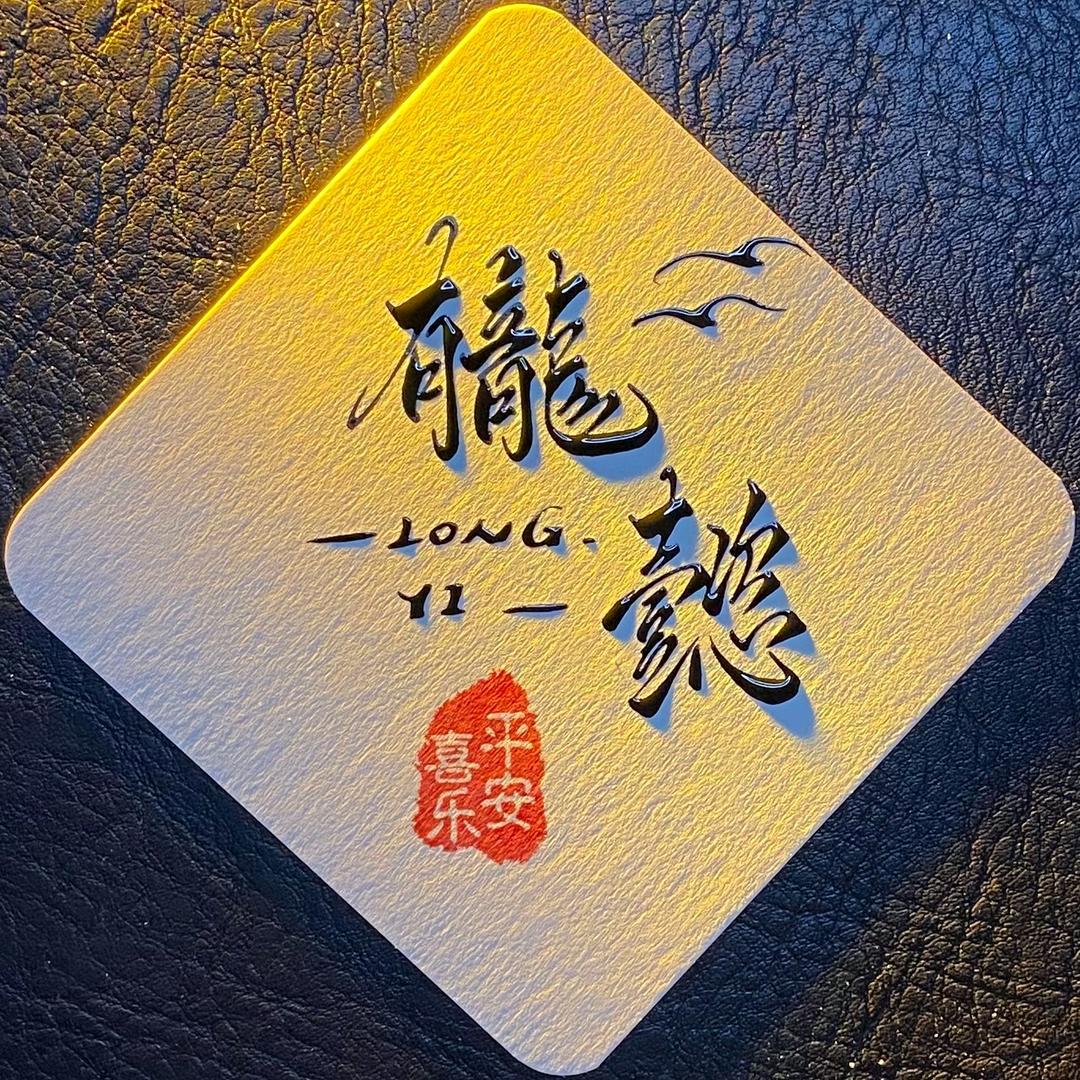 龓
懿
—LONG.
YI—
平安
喜乐